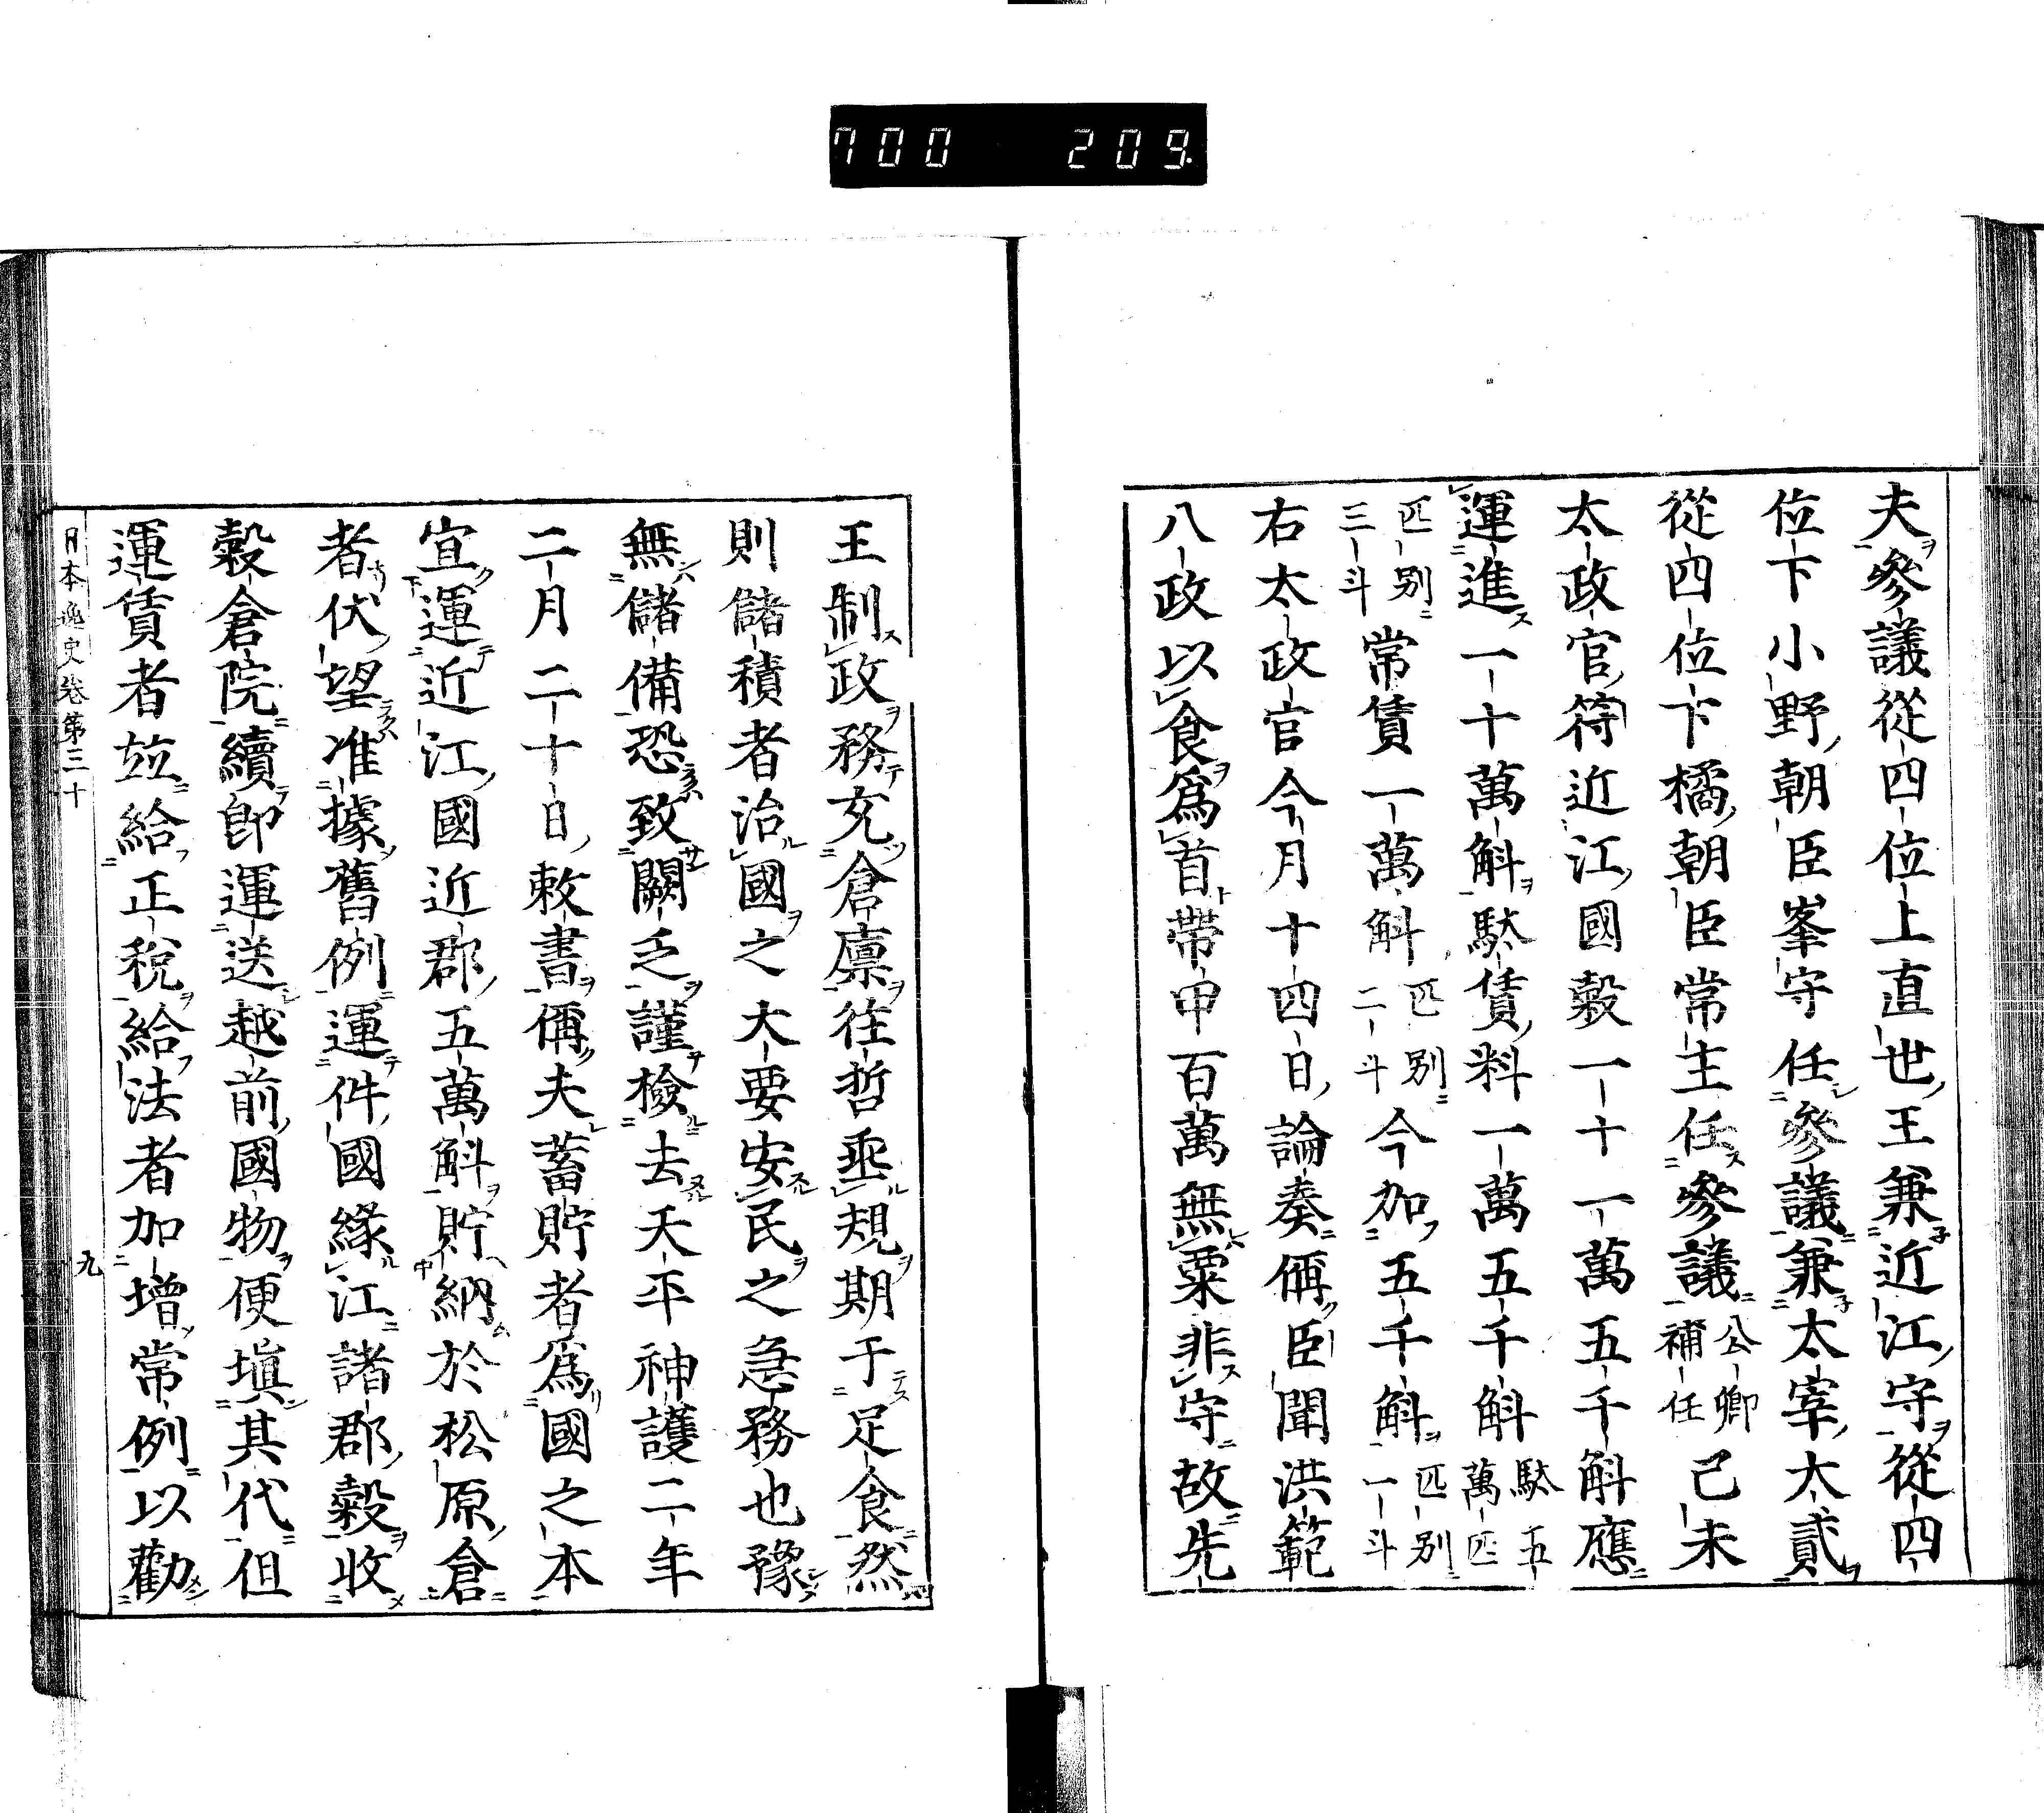 700 209.
夫參議從四位上直世王兼近江守從四
位下小野朝臣峯守任參議兼太宰大貳
從四位下橘朝臣常主任參議公卿補任己未
太政官符近江國穀一十一萬五千斛應
運進一十萬斛駄賃料一萬五千斛駄五萬匹
匹別三斗常賃一萬斛匹別二斗今加五千斛匹別一斗
右太政官今月十四日論奏偁臣聞洪範
八政以食爲首帶甲百萬無粟非守故先
王制政務充倉廩往哲垂規期于足食然
則儲積者治國之大要安民之急務也豫
無儲備恐致闕乏謹檢去天平神護二年
二月二十日敕書偁夫蓄貯者爲國之本
宜運近江國近郡五萬斛貯納於松原倉
者伏望准據舊例運件國緣江諸郡穀收
穀倉院續卽運送越前國物便塡其代但
運賃者竝給正稅給法者加增常例以勸
日本逸史卷第三十
九